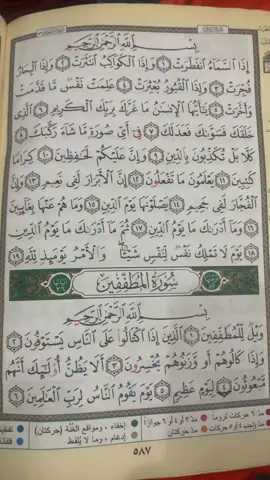 بِسْمِ اللَّهِ الرَّحْمَٰنِ الرَّحِيمِ
إِذَا السَّمَاءُ انفَطَرَتْ ١ وَإِذَا الْكَوَاكِبُ انتَثَرَتْ ٢ وَإِذَا الْبِحَارُ
فُجِّرَتْ ٣ وَإِذَا الْقُبُورُ بُعْثِرَتْ ٤ عَلِمَتْ نَفْسٌ مَّا قَدَّمَتْ
وَأَخَّرَتْ ٥ يَٰأَيُّهَا الْإِنسَٰنُ مَا غَرَّكَ بِرَبِّكَ الْكَرِيمِ ٦ الَّذِي
خَلَقَكَ فَسَوَّىٰكَ فَعَدَلَكَ ٧ فِي أَيِّ صُورَةٍ مَّا شَاءَ رَكَّبَكَ ٨
كَلَّا بَلْ تُكَذِّبُونَ بِالدِّينِ ٩ وَإِنَّ عَلَيْكُمْ لَحَٰفِظِينَ ١٠ كِرَامًا
كَٰتِبِينَ ١١ يَعْلَمُونَ مَا تَفْعَلُونَ ١٢ إِنَّ الْأَبْرَارَ لَفِي نَعِيمٍ ١٣ وَإِنَّ
الْفُجَّارَ لَفِي جَحِيمٍ ١٤ يَصْلَوْنَهَا يَوْمَ الدِّينِ ١٥ وَمَا هُمْ عَنْهَا بِغَائِبِينَ
١٦ وَمَا أَدْرَىٰكَ مَا يَوْمُ الدِّينِ ١٧ ثُمَّ مَا أَدْرَىٰكَ مَا يَوْمُ الدِّينِ
١٨ يَوْمَ لَا تَمْلِكُ نَفْسٌ لِّنَفْسٍ شَيْئًا وَالْأَمْرُ يَوْمَئِذٍ لِّلَّهِ ١٩
سُورَةُ الْمُطَفِّفِينَ
بِسْمِ اللَّهِ الرَّحْمَٰنِ الرَّحِيمِ
وَيْلٌ لِّلْمُطَفِّفِينَ ١ الَّذِينَ إِذَا اكْتَالُوا عَلَى النَّاسِ يَسْتَوْفُونَ ٢
وَإِذَا كَالُوهُمْ أَو وَّزَنُوهُمْ يُخْسِرُونَ ٣ أَلَا يَظُنُّ أُولَٰئِكَ أَنَّهُم
مَّبْعُوثُونَ ٤ لِيَوْمٍ عَظِيمٍ ٥ يَوْمَ يَقُومُ النَّاسُ لِرَبِّ الْعَالَمِينَ ٦
مد ٦ حركات لزوماً مد ٢ أو ٤ أو ٦ جوازاً إخفاء، ومواقع الغُنَّة (حركتان)
مد حركتان إدغام، وما لا يُلفظ
٥٨٧